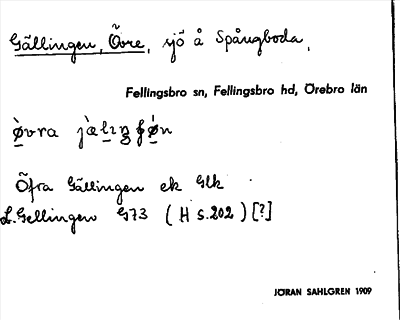 Gällingen, Övre, sjö å Spångboda,
Fellingsbro sn, Fellingsbro hd, Örebro län
Öfra Gällingen ek Glk
L. Gellingen G73 (H s.202) [?]
JÖRAN SAHLGREN 1909